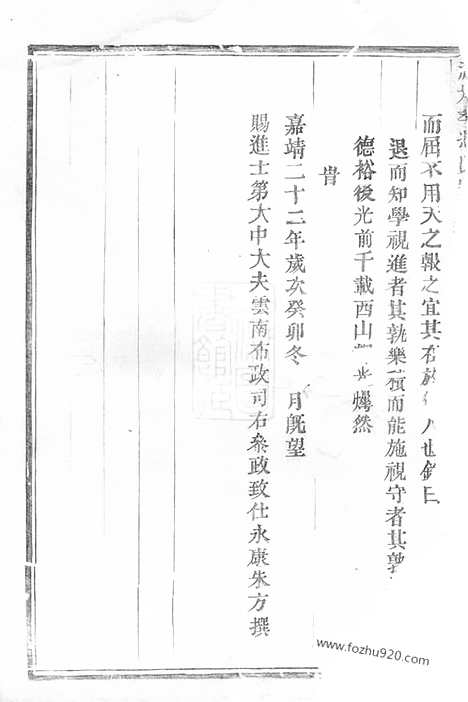 而屈不用天之報之宜其在於人也銘曰
退而知學視進者其孰樂積而能施視守者其孰
德裕後光前千載西山然
旹
嘉靖二十二年歲次癸卯冬月既望
賜進士第大中大夫雲南布政司右叅政致仕永康朱方撰
www.fozhu920.com